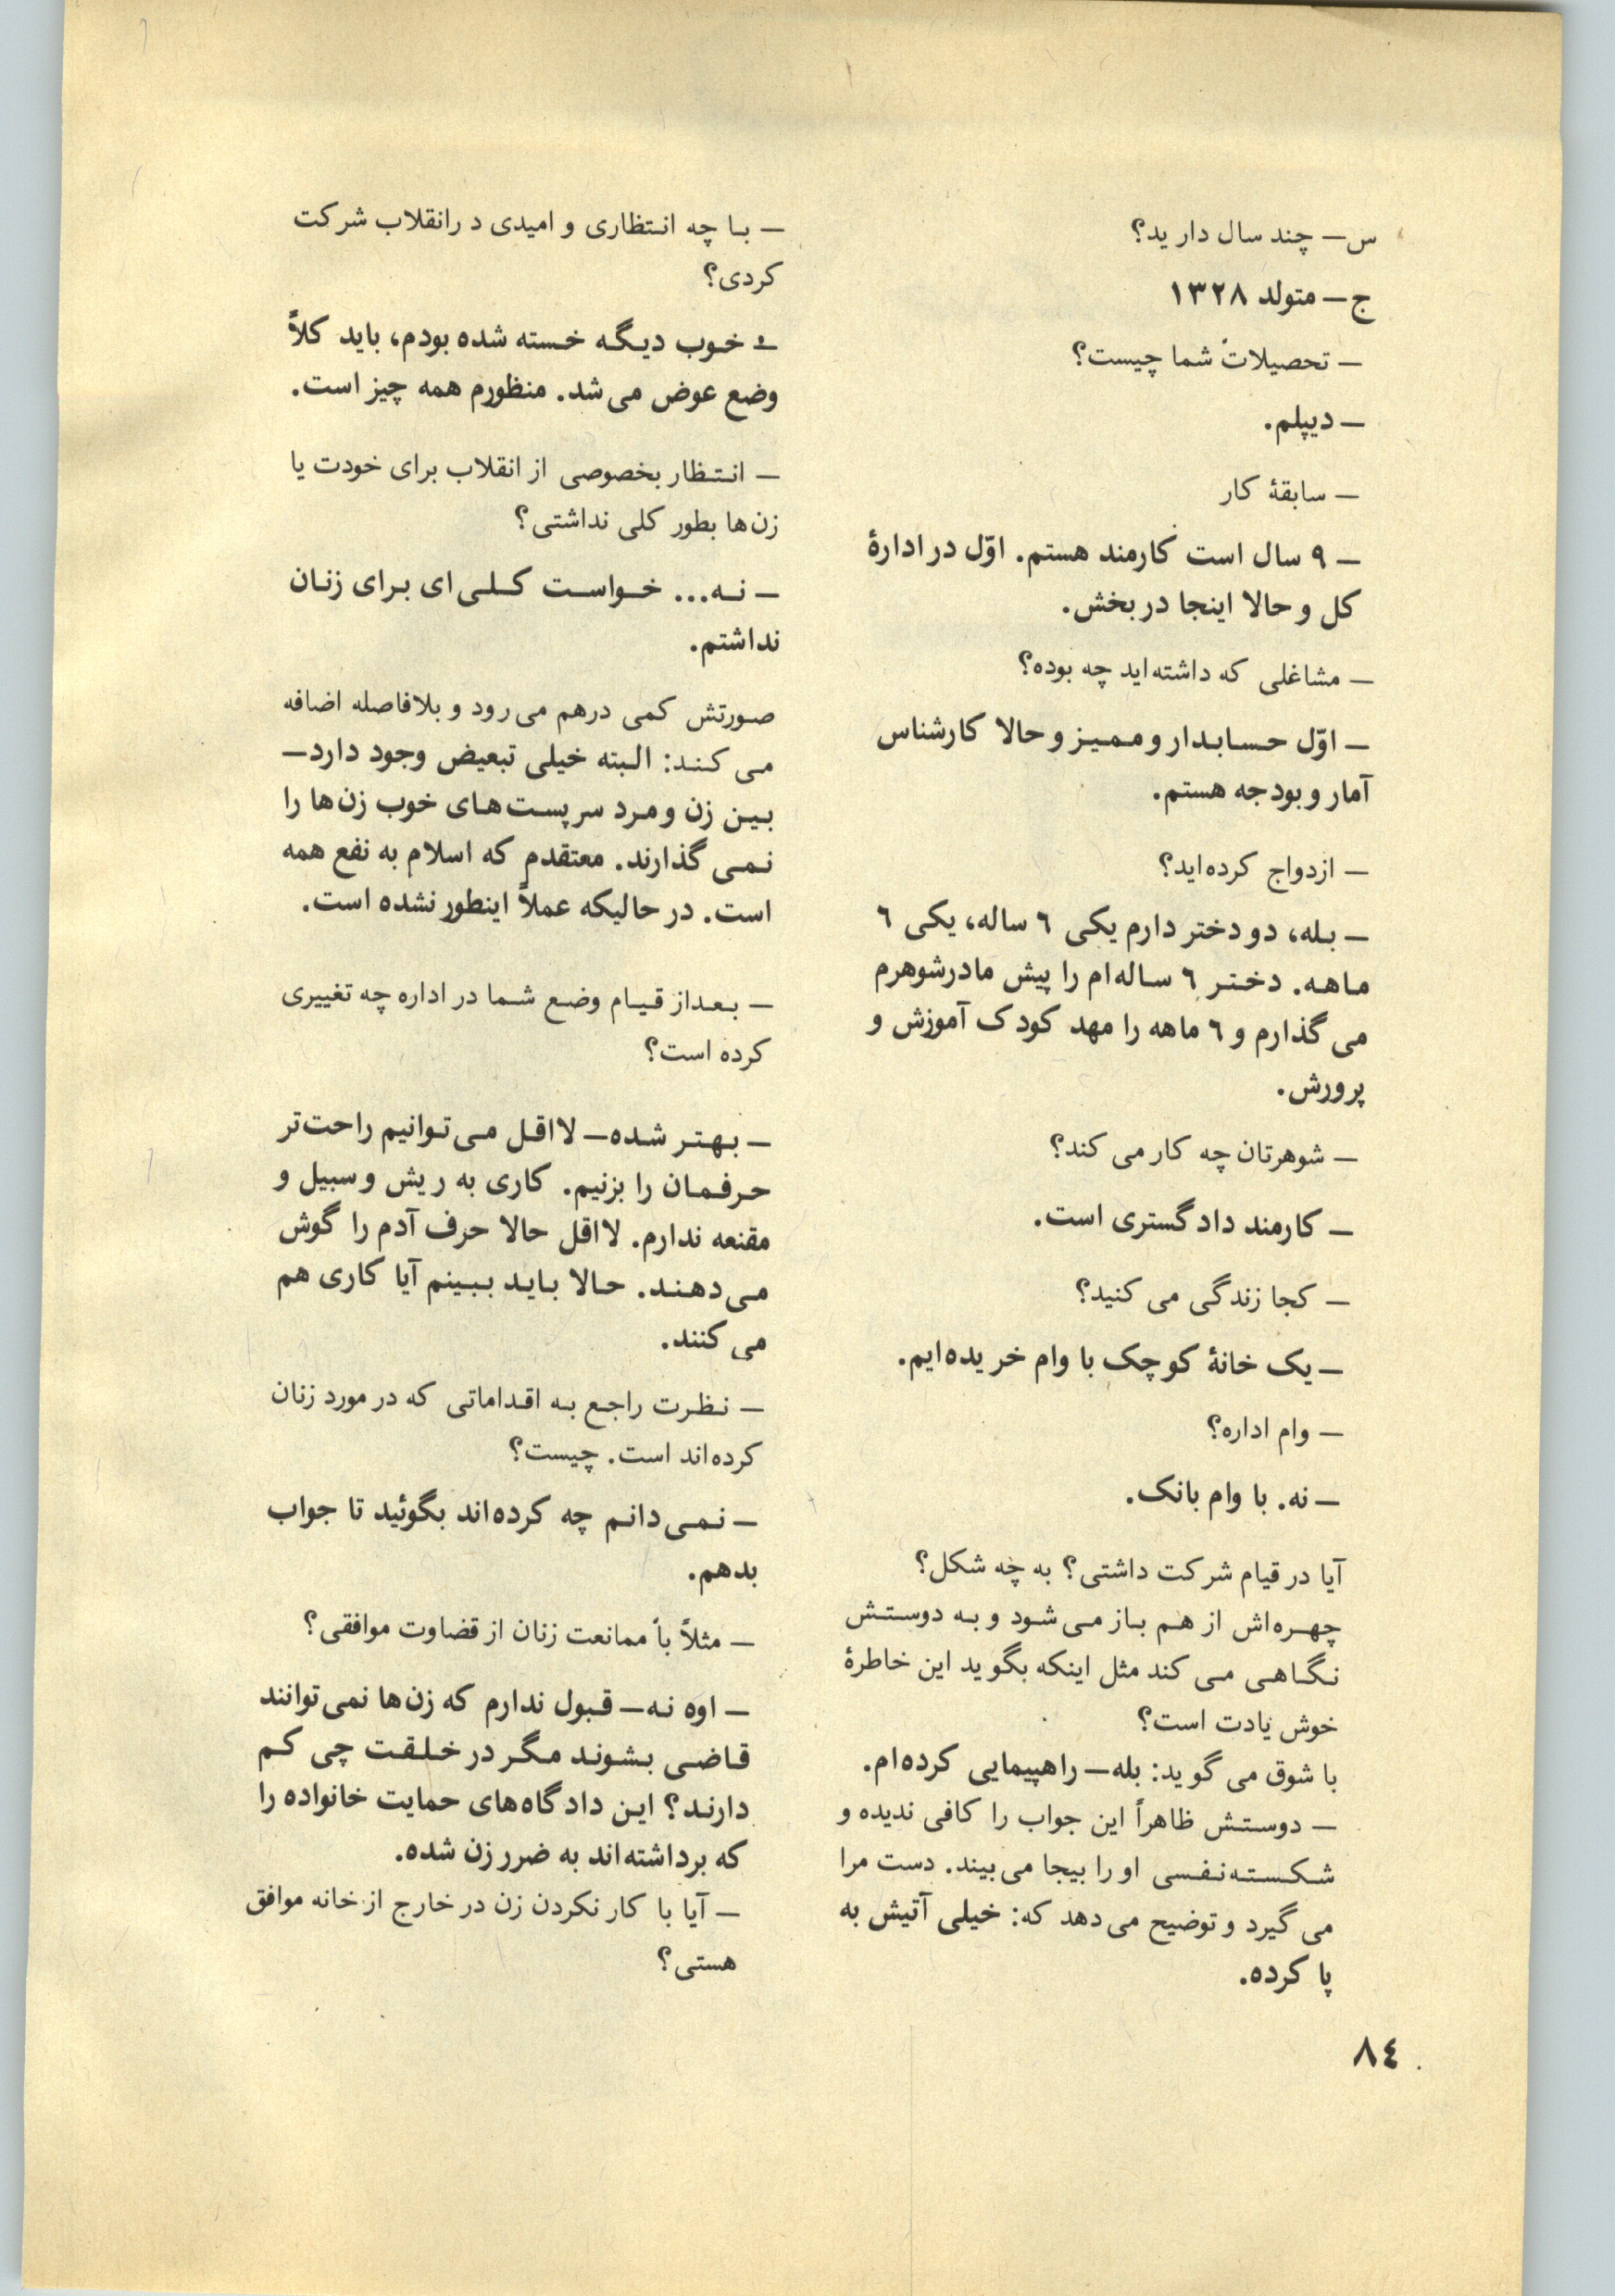 س— چند سال دارید؟
ج— متولد ۱۳۲۸
— تحصیلات شما چیست؟
— دیپلم.
— سابقهٔ کار
— ۹ سال است کارمند هستم. اوّل در ادارهٔ
کل و حالا اینجا در بخش.
— مشاغلی که داشته‌اید چه بوده؟
— اوّل حسابدار و ممیز و حالا کارشناس
آمار و بودجه هستم.
— ازدواج کرده‌اید؟
— بله، دو دختر دارم یکی ٦ ساله، یکی ٦
ماهه. دختر ٦ ساله‌ام را پیش مادرشوهرم
می‌گذارم و ٦ ماهه را مهد کودک آموزش و
پرورش.
— شوهرتان چه کار می‌کند؟
— کارمند دادگستری است.
— کجا زندگی می‌کنید؟
— یک خانهٔ کوچک با وام خریده‌ایم.
— وام اداره؟
— نه. با وام بانک.
آیا در قیام شرکت داشتی؟ به چه شکل؟
چهره‌اش از هم باز می‌شود و به دوستش
نگاهی می‌کند مثل اینکه بگوید این خاطرهٔ
خوش یادت است؟
با شوق می‌گوید: بله— راهپیمایی کرده‌ام.
— دوستش ظاهراً این جواب را کافی ندیده و
شکسته‌نفسی او را بیجا می‌بیند. دست مرا
می‌گیرد و توضیح می‌دهد که: خیلی آتیش به
پا کرده.
— با چه انتظاری و امیدی در انقلاب شرکت
کردی؟
— خوب دیگه خسته شده بودم، باید کلاً
وضع عوض می‌شد. منظورم همه چیز است.
— انتظار بخصوصی از انقلاب برای خودت یا
زن‌ها بطور کلی نداشتی؟
— نه... خواست کلی‌ای برای زنان
نداشتم.
صورتش کمی درهم می‌رود و بلافاصله اضافه
می‌کند: البته خیلی تبعیض وجود دارد—
بین زن و مرد سرپست‌های خوب زن‌ها را
نمی‌گذارند. معتقدم که اسلام به نفع همه
است. در حالیکه عملاً اینطور نشده است.
— بعد از قیام وضع شما در اداره چه تغییری
کرده است؟
— بهتر شده— لااقل می‌توانیم راحت‌تر
حرفمان را بزنیم. کاری به ریش و سبیل و
مقنعه ندارم. لااقل حالا حرف آدم را گوش
می‌دهند. حالا باید ببینم آیا کاری هم
می‌کنند.
— نظرت راجع به اقداماتی که در مورد زنان
کرده‌اند است. چیست؟
— نمی‌دانم چه کرده‌اند بگوئید تا جواب
بدهم.
— مثلاً با ممانعت زنان از قضاوت موافقی؟
— اوه نه— قبول ندارم که زن‌ها نمی‌توانند
قاضی بشوند مگر در خلقت چی کم
دارند؟ این دادگاه‌های حمایت خانواده را
که برداشته‌اند به ضرر زن شده.
— آیا با کار نکردن زن در خارج از خانه موافق
هستی؟
٨٤